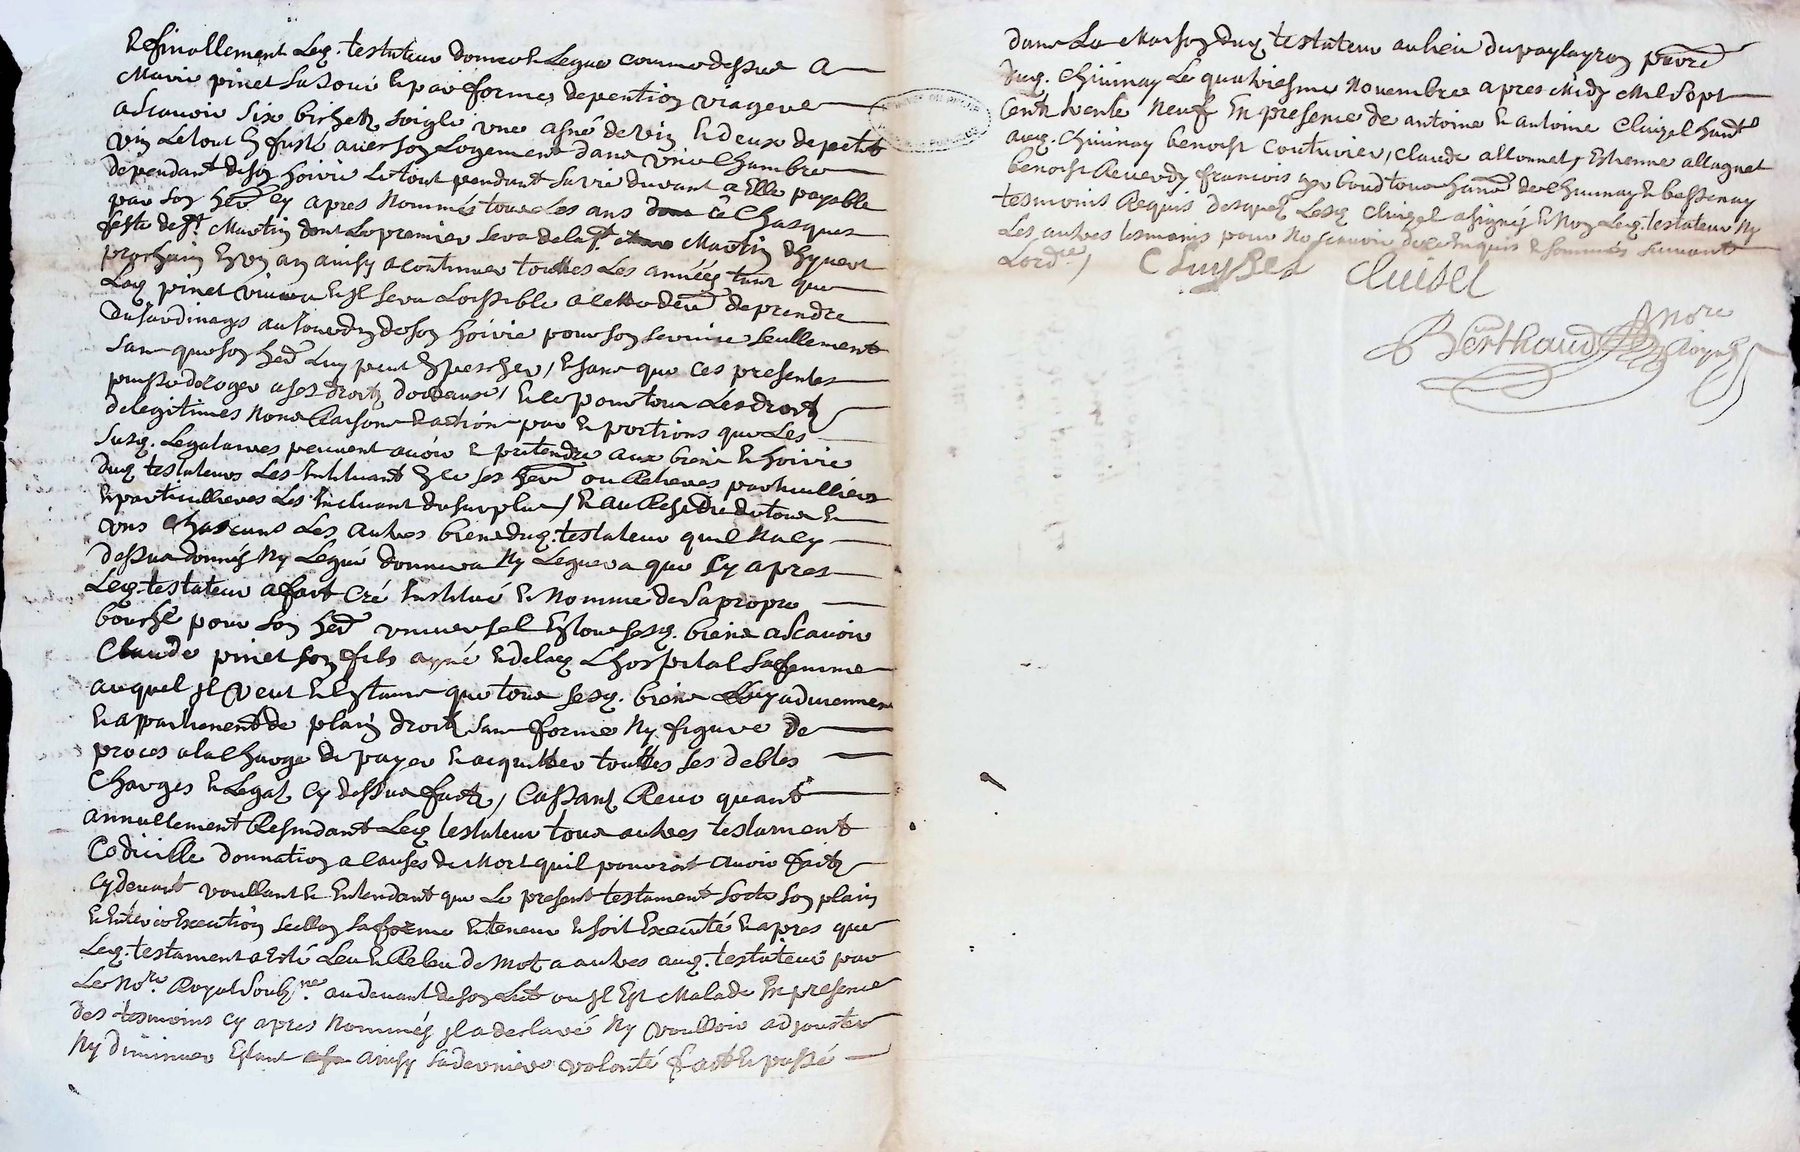 Et finallement Leq. testateur donne et Legue comme dessus A
Marie pinet sa soeur et par forme de pention viagere
a scavoir six bichetz soigle, une asné de vin et deux de petit
vin Le tout En fust avec son Logement dans une chambre
dependant de son hoirie Le tout pendant sa vie durant a Elle payable
par son her. Cy apres Nommés tous les ans a Chasques
feste de St. Martin dont La premier sera de la St. Martin d'hyvert
prochain En un an ainsy a continuer touttes Les années tant que
Laq pinet vivra et Il sera Loissible a cette der. de prendre
du Jardinage au Jardin de son hoirie pour son service seullement
sans que son her. Luy puit Enpescher, Et sans que ces presentes
puisse deroger a ses droitz et ce pour tous Les droitz
de legitimes Noms Raisons et actions par et portions que Les
susq. Legataires peuvent avoir et pretendre aux biens et hoirie
duq testateur Les Instituant En ce ses her. particulliers
et particullieres Les Incluant du surplus, Et Au Residu de tous et
uns chascuns Les autres biens duq. testateur quil Na cy
dessus donnés Ny Legué donnera Ny Leguera que Cy apres
Leq. testateur a fait Cré Institué et Nomme de sa propre
bouche pour son her. universel En tous sesq. biens a scavoir
Claude pinet son fils ayné et de laq Lhospital sa femme
auquel Il veut et Entans que tous sesq. biens Luy adviennent
et appartienent de plain droit sans forme Ny figure de
proces a la charge de payer et acquitter touttes ses debtes
Charges et Legatz Cy dessus faitz, Cassant Revoquant
annullement Resindant Leq testateur tous autres testament
Codicille donnation a causes de Mort quil pouvroit avoir faitz
Cy devant voullant et Entendant que Le present testament sorte son plain
et Entier Execution sellon sa forme et teneur et soit Executé Et apres que
Leq. testament a Esté Leu et Releu de Mot a autres auq. testateur par
Le Nore. Royal soubz.ne au devant de son Lict ou Il Est Malade En presence
des tesmoins Cy apres Nommés Il a declaré Ny voulloir adjouster
Ny diminuer Estant ainsy sa derniere volonté fait et passé
dans La Maison duq testateur au lieu du paylayron parre
duq. Chivinay Le quatriesme Novembre apres Midy Mil Sept
Cent trente Neuf En presence de antoine et antoine Cluizel hant
auq. Chivinay benoist Couturier, Claude allonnet, Estienne allagnet
benoist Reverdy francois boudtour hant de Chivinay et bessenay
tesmoins Requis desquelz Lesq Cluizel a signés et Non Leq. testateur Ny
Les autres tesmoins pour Ne scavoir de ce Enquis et sommés suivant
Lord.ce /
Cluyzel Cluisel
Berthaud Nore
Royal